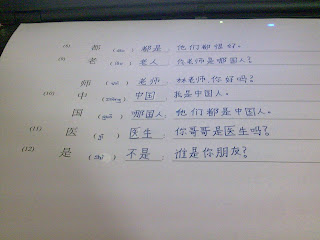 (8) 都 (dōu) 都是；他们都很好。
(9) 老 (lǎo) 老人；老师是哪国人？
师 (shī) 老师；林老师，你好吗？
(10) 中 (zhōng) 中国；我是中国人。
国 (guó) 哪国人；他们都是中国人。
(11) 医 (yī) 医生；你哥哥是医生吗？
(12) 是 (shì) 不是；谁是你朋友？